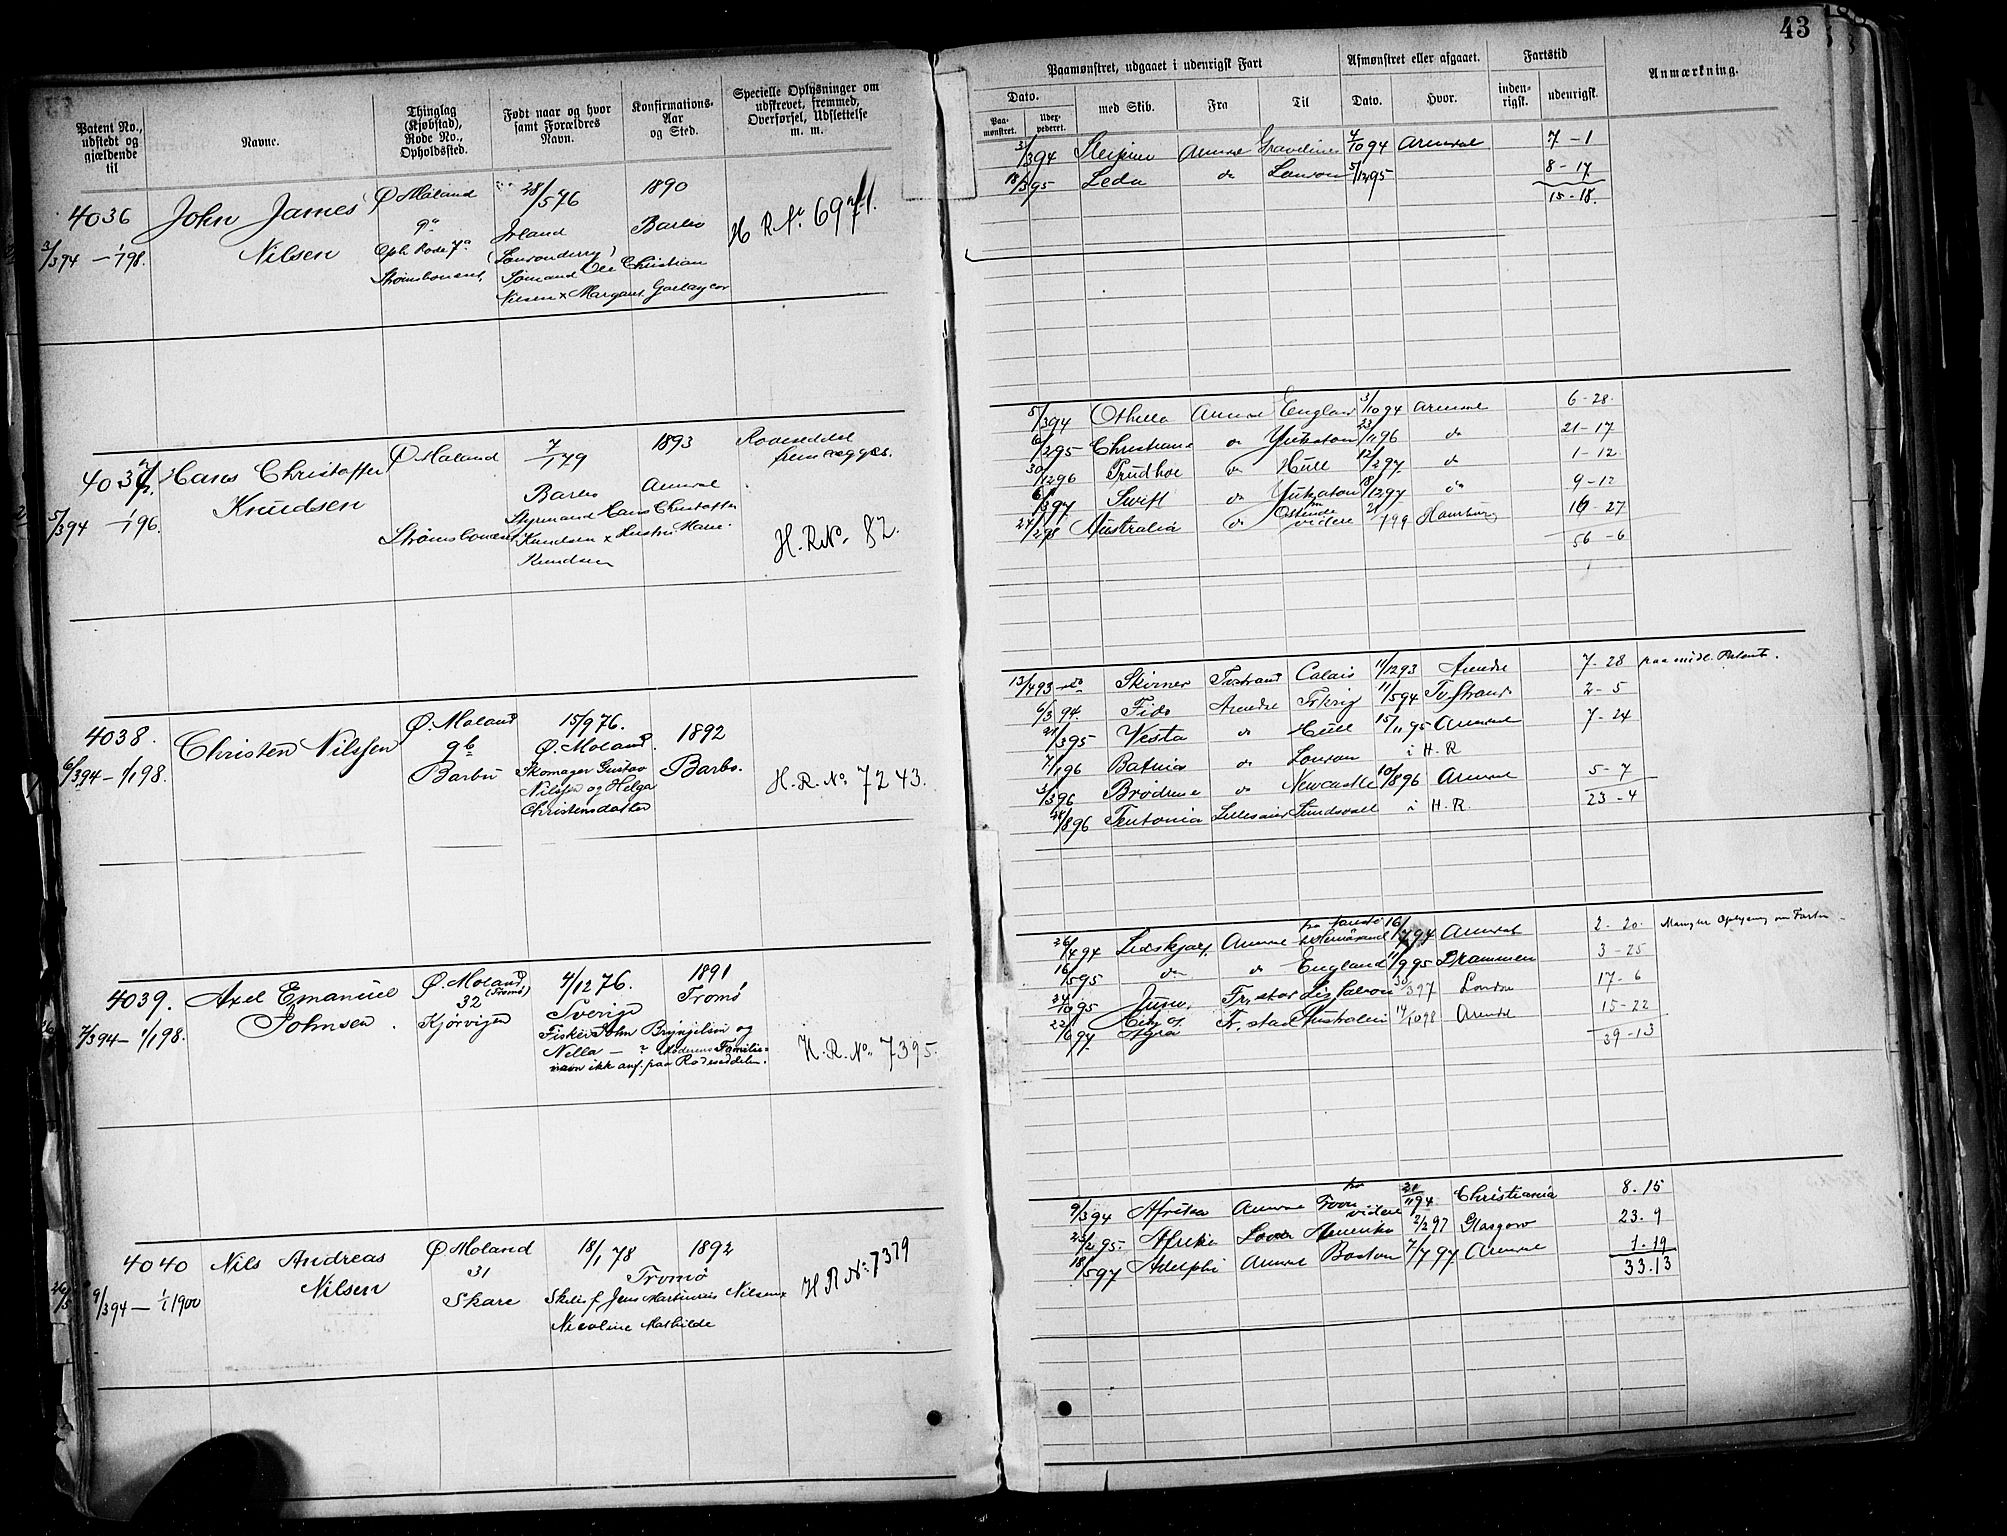 43
Patent No., udstedt og gjældende til
Navne.
Thinglag (Kjøbstad), Rode No., Opholdssted.
Født naar og hvor samt Forældres Navn.
Konfirmations-Aar og Sted.
Specielle Oplysninger om udskrevet, fremmed, Overførsel, Udslettelse m. m.
Paamønstret, udgaaet i udenrigsk Fart
Afmønstret eller afgaaet.
Fartstid
Anmærkning.
Dato.
med Skib.
Fra
Til
Dato.
Hvor.
inden-rigsk.
udenrigsk.
Paa-mønstret.
4036
John James
Nilsen
3/3 94 — 1/1 98.
Ø Moland
9a
Oph Rode 7a
28/5 76
Irland
(Londonderry)
Sømand Ole Christian
Nilsen x Margaret
1890
Barbo
H R No 6971.
3/3 94 Sleipner Arendal Gravelines 4/10 94 Arendal 7 - 1
18/3 95 Leda do London 5/12 95 8 - 17
15 - 18.
4037
Hans Christoffer
Knudsen
5/3 94 — 1/1 96.
Ø Moland
7/1 79
Barbo
Styrmand Hans Christoffer
Knudsen x Hustru Marie
Knudsen
1893
Arendal
Rodeseddel
fremlægges.
H. R No. 82.
5/3 94 Othello Arendal England 3/10 94 Arendal 6 - 28.
6/2 95 Christiane do Yukatan 23/11 96 do 21 - 17
30/12 96 Prudhoe do Hull 12/2 97 do 1 - 12
6/3 97 Swift do Yukatan 18/12 97 do 9 - 12
24/2 98 Australia do Ostende videre 21/1 99 Hamburg 16 - 27
56 - 6
4038.
Christen Nilssen
6/3 94 — 1/1 98.
Ø. Moland
9b
Barbu
15/9 76.
Ø. Moland.
Skomager Gustav
Nilssen og Helga
Christensdatter
1892
Barbo.
H. R. No. 7243.
13/4 93 Skirner Tvedestrand Calais 11/12 93 Arendal 7 - 28 paa midl. Patent.
6/3 94. Fido Arendal 11/5 94 2 - 5
21/3 95 Vesta do Hull 15/11 95 Arendal 7 - 24
7/1 96 Batavia do London i H. R
3/3 96 Brodrene do Newcastle 10/8 96 Arendal 5 - 7
23 - 4
28/8 96 Teutonia Sundsvall i H. R.
4039.
Axel Emanuel
Johnsen.
7/3 94 — 1/1 98.
Ø. Moland
(Tromø)
32
Kjørvigen
4/12 76.
Sverige
Fisker John Brynjelsen og
Nilla — ? Moderens Familie-
navn ikke anf. paa Rodeseddelen.
1891
Tromø
H. R. No. 7395.
26/4 94 Lidskjalf Arendal 16/7 94 Arendal 2 - 20. Mangler Oplysning om Farten
16/5 95 do do England 11/9 95 Drammen 3 - 25
24/10 95 Juno Fr.stad 30/3 97 London 17 - 6
22/6 97 City of Agra Fr.stad Australien 14/10 98 Arendal 15 - 22
39 - 13
4040
Nils Andreas
Nilsen
9/3 94 — 1/1 1900
Ø Moland
31
Skare
18/1 78
Tromø
Jens Martinius Nilsen x
Nicoline Mathilde
1892
H R No. 7379
9/3 94 Afrika Arendal videre 94 Christiania 8. 15
23/2 95. Afrika Amerika 2/2 97 Glasgow 23. 9
18/5 97 Adelphi Arendal Boston 7/7 97 Arendal 1. 19
33. 13